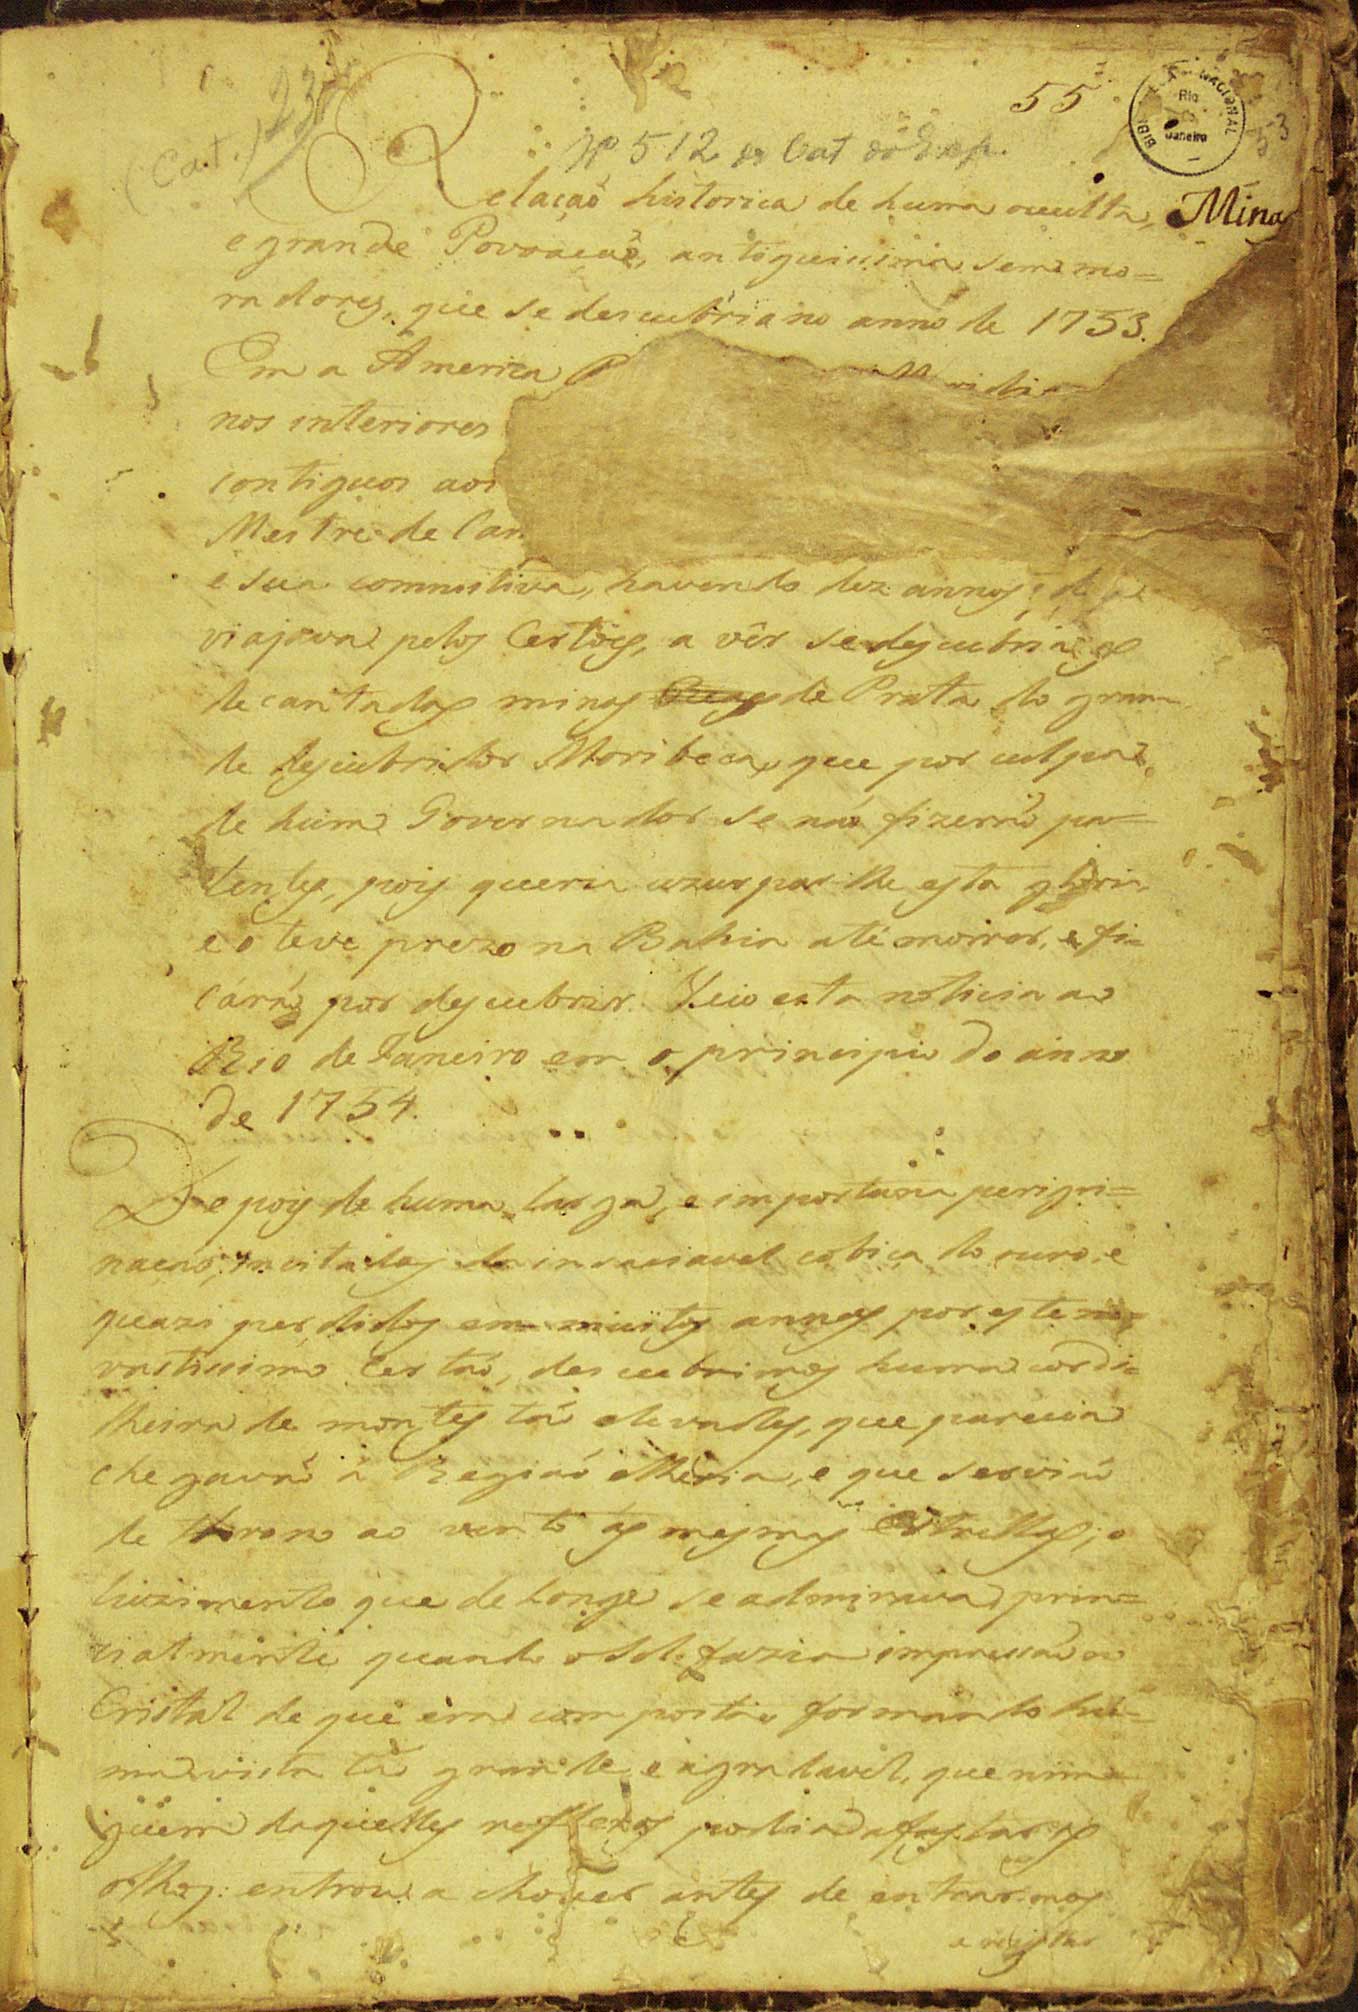 (Cat.) 23
55
53
BIBLIOTECA NACIONAL
Rio
Janeiro
Nº 512 do Cat da Exp.
Minas
Relaçaõ historica de huma occulta,
e grande Povoaçaõ, antiguissima sem mo=
radores, que se descubriu no anno de 1753.
Em a America
nos interiores
contiguos aos
Mestre de Can
e sua commitiva, havendo dez annos, q̃
viajava pelos Certões, a vêr se descubria as
decantadas minas de Prata do gran
de descubridor Moribeca, que por culpa
de hum Governador se naõ fizeraõ pa=
tentes, pois queria uzurparlhe esta gloria
e o teve prezo na Bahia até morrer, e fi=
cáraõ por descubrir. Veio esta noticia ao
Rio de Janeiro em o principio do anno
de 1754.
Depois de huma larga, e importuna perigri=
naçaõ, incitados da insaciavel cobiça do ouro, e
quazi perdidos em muitos annos por este
vastissimo Certaõ, descubrimos huma cordi=
lheira de montes taõ elevados, que parecia
chegavaõ á Regiaõ etheria, e que serviaõ
de throno ao vento ás mesmas Estrellas; o
luzimento que de longe se admirava, prin=
cialmente quando o Sol fazia impressaõ ao
Cristal de que era composta, formando hu=
ma vista taõ grande e agradavel, que nin=
guem daquelles reflexos podia afastar os
olhos: entrou a chover antes de entrarmos
a registar